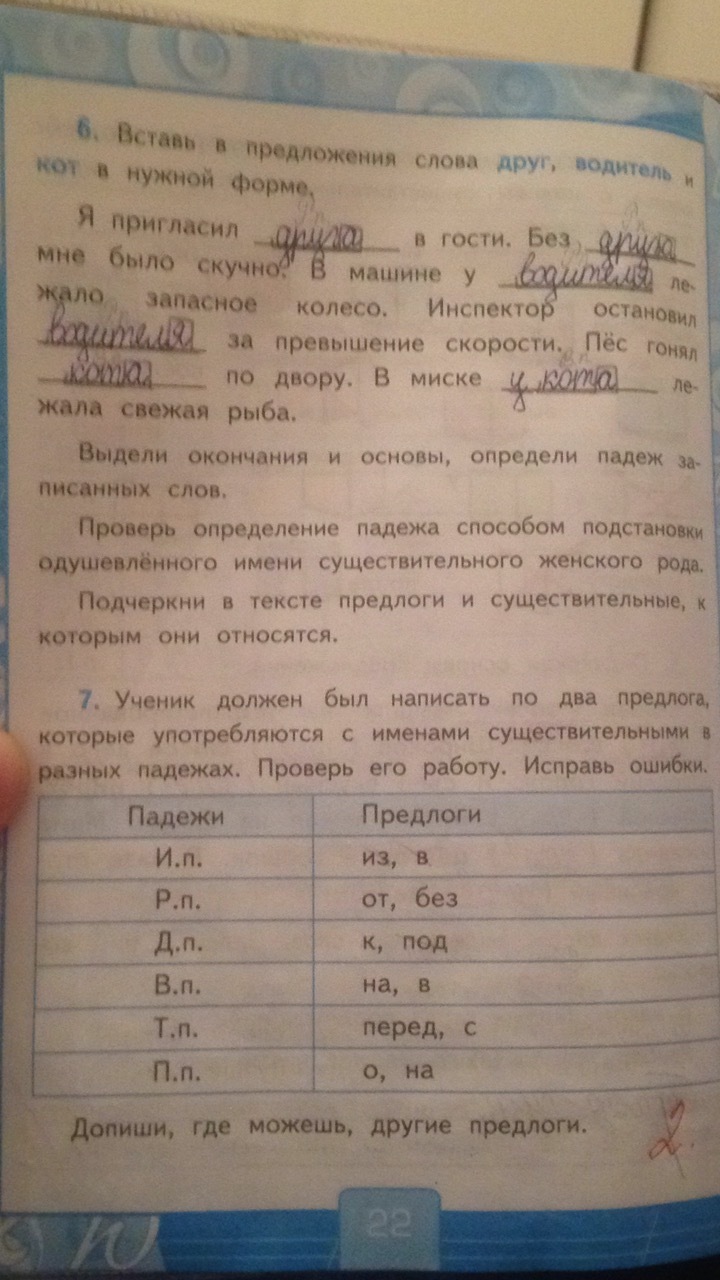 6. Вставь в предложения слова друг, водитель и
кот в нужной форме.
Я пригласил друга в гости. Без друга
мне было скучно. В машине у водителя ле-
жало запасное колесо. Инспектор остановил
водителя за превышение скорости. Пёс гонял
кота по двору. В миске у кота ле-
жала свежая рыба.
Выдели окончания и основы, определи падеж за-
писанных слов.
Проверь определение падежа способом подстановки
одушевлённого имени существительного женского рода.
Подчеркни в тексте предлоги и существительные, к
которым они относятся.
7. Ученик должен был написать по два предлога,
которые употребляются с именами существительными в
разных падежах. Проверь его работу. Исправь ошибки.
Падежи Предлоги
И.п. из, в
Р.п. от, без
Д.п. к, под
В.п. на, в
Т.п. перед, с
П.п. о, на
Допиши, где можешь, другие предлоги.
2.
22